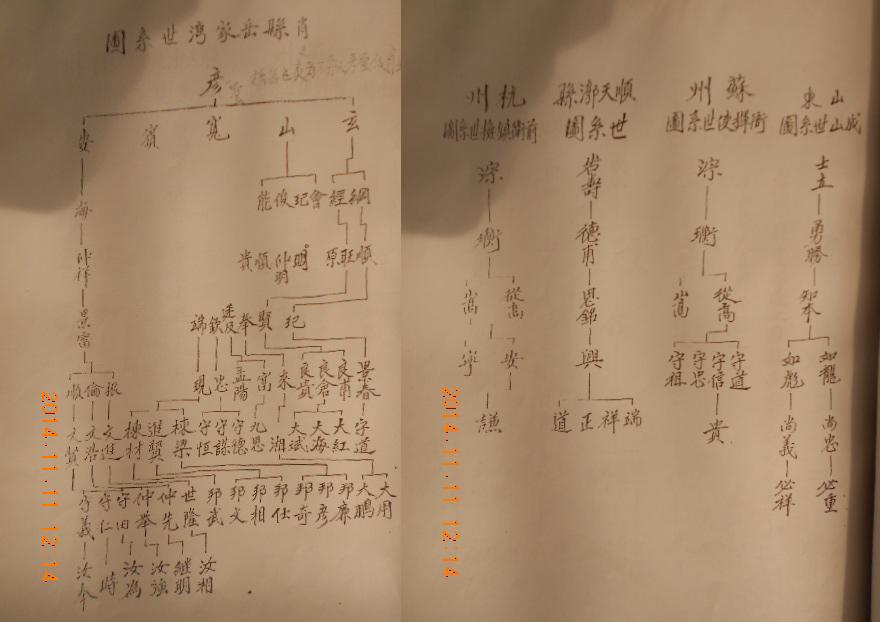 肖縣岳家灣世系圖
彦
玄 山 寬 賓 安
綱 經 會 玘 俊 能
海
順 旺 原 明 仲明 順 貴
仲祥
玘 賢 奉 及 欽 端
景春 良甫 良倉 良貴 來 富 孟陽 忠 現
振 倫 順
字道 大紅 大海 大斌 湘 九思 守德 守謀 守恒 棟梁 進賢 棟材 文進 文浩 文賢
大用 大鵬 邦廉 邦彦 邦奇 邦仕 邦相 邦文 邦武 世隆 仲先 仲舉 守田 守仁 守義
汝相 繼明 汝強 汝為 時 汝奉
2014.11.11 12:14
山東
成山世系圖
士立
勇勝
知本
如龍 如彪
尚忠 尚義
必重 必祥
蘇州
衛揮使世系圖
淙
衡
從喬 嵩
守道 守信 守忠 守祖
貴
順天漷縣
世系圖
岩壽
德甫
思銘
興
端 祥 正 道
杭州
前衛鎮撫世系圖
淙
衡
從喬 嵩
安 寧
謙
2014.11.11 12:14